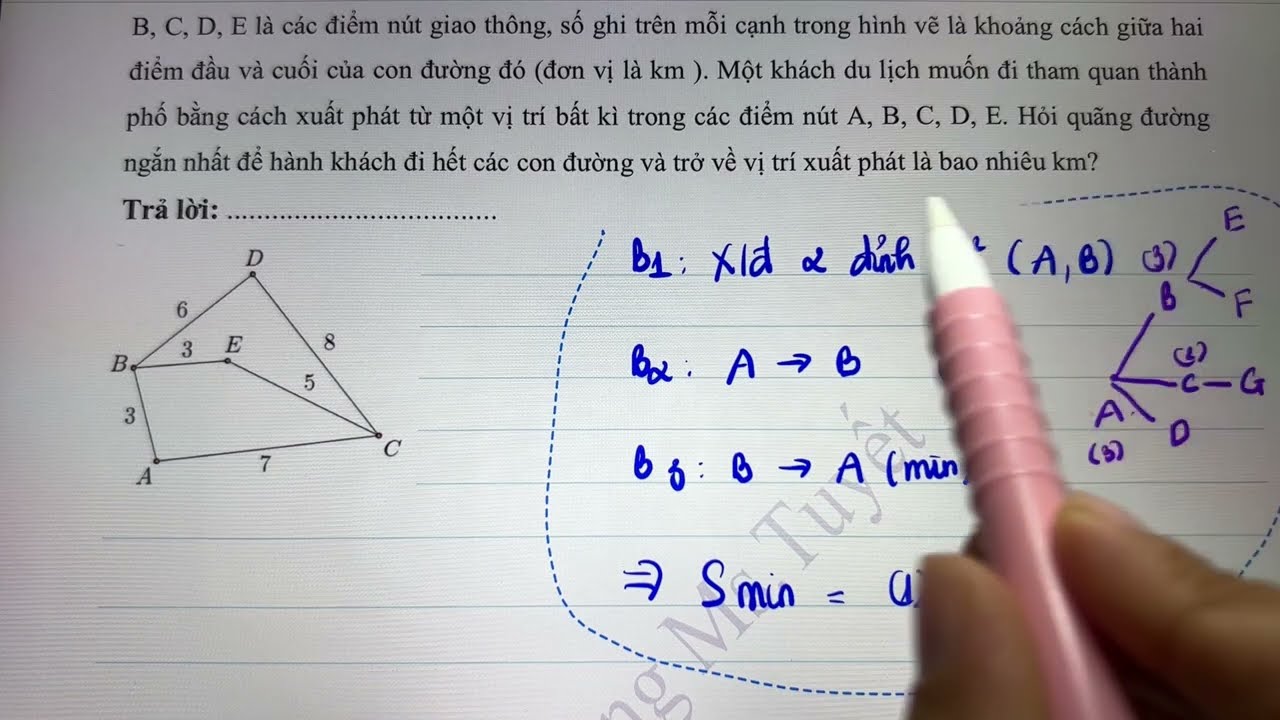 B, C, D, E là các điểm nút giao thông, số ghi trên mỗi cạnh trong hình vẽ là khoảng cách giữa hai
điểm đầu và cuối của con đường đó (đơn vị là km ). Một khách du lịch muốn đi tham quan thành
phố bằng cách xuất phát từ một vị trí bất kì trong các điểm nút A, B, C, D, E. Hỏi quãng đường
ngắn nhất để hành khách đi hết các con đường và trở về vị trí xuất phát là bao nhiêu km?
Trả lời: ....................................
D
6
B
3
E
8
5
3
A
7
C
B1: Xlđ 2 đỉnh (A, B)
B2: A → B
B3: B → A (min
⇒ Smin =
(3)
E
B
F
(2)
C
G
A
D
(3)
Ms Tuyết